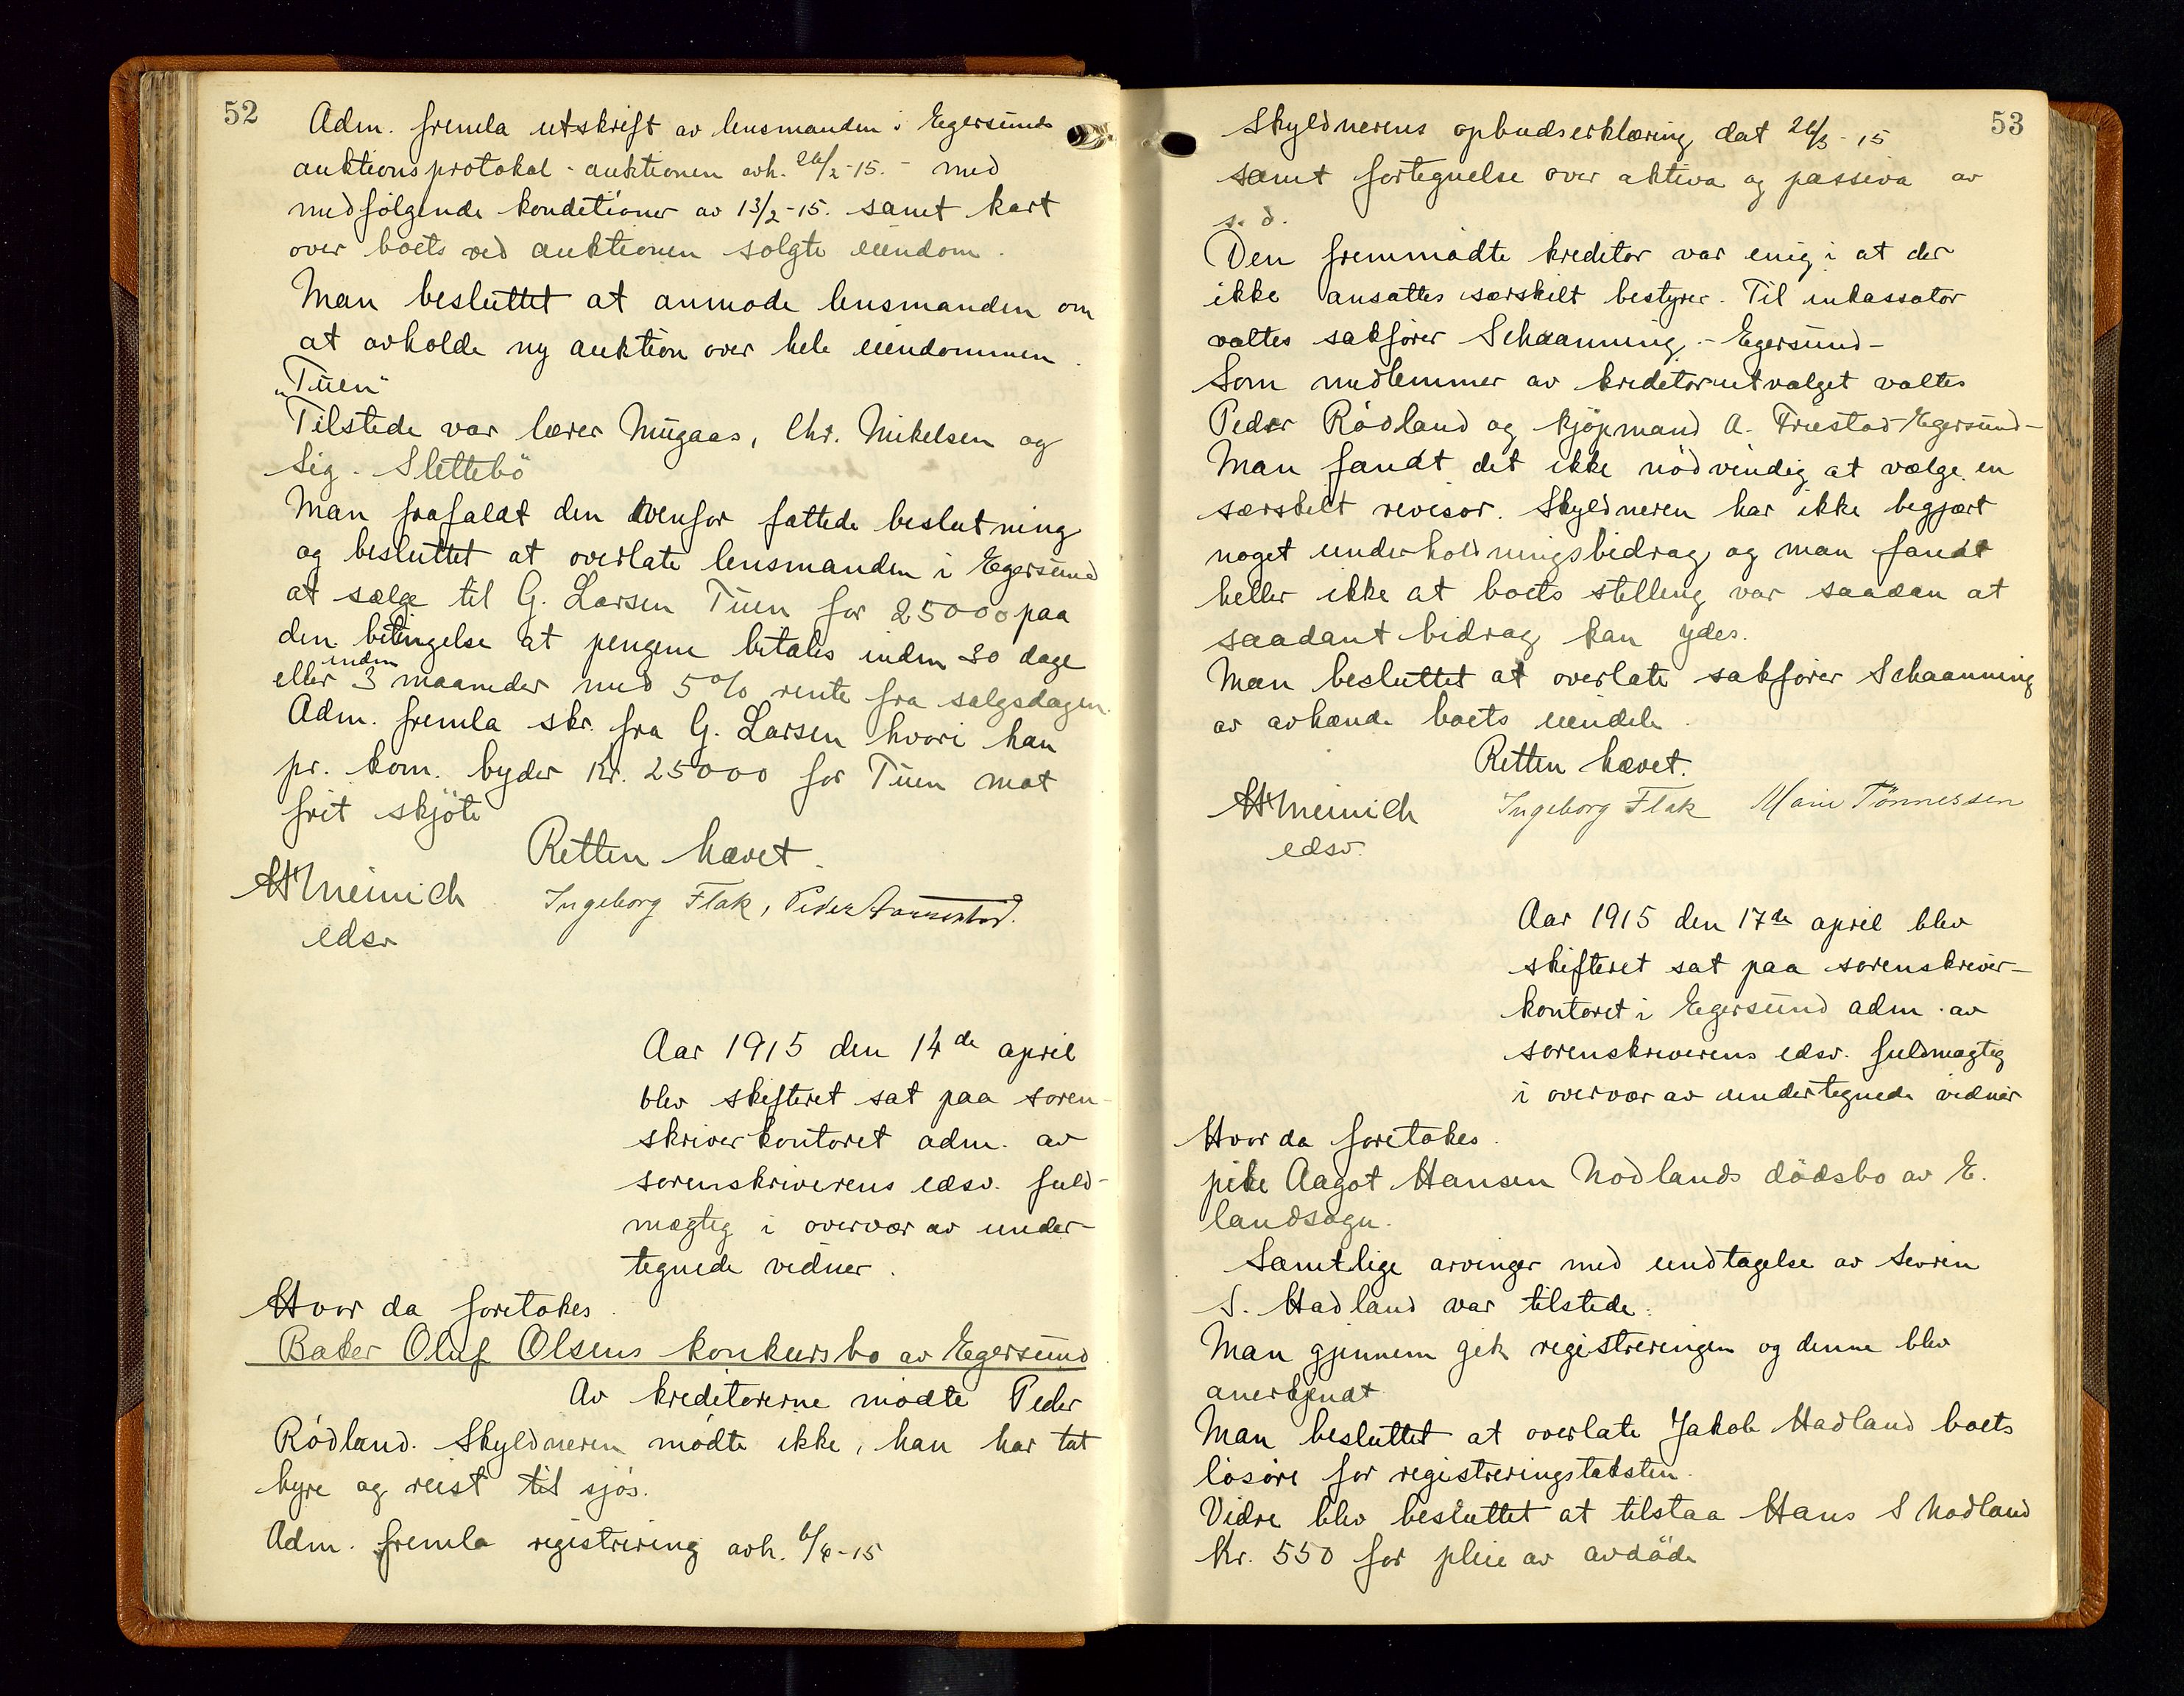 52
Adm. fremla utskrift av lensmanden i Egersunds
auktionsprotokol - auktionen avh. 26/2-15. - med
medfølgende konditioner av 13/2-15. samt kart
over boets ved auktionen solgte eiendom.
Man besluttet at anmode lensmanden om
at avholde ny auktion over hele eiendommen
"Tuen"
Tilstede var lærer Mugaas, Chr. Mikelsen og
Sig. Slettebö
Man frafaldt den ovenfor fattede beslutning
og besluttet at overlate lensmanden i Egersund
at sælge til G. Larsen Tuen for 25000 paa
den betingelse at pengene betales inden 30 dage
inden
eller 3 maaneder med 5% rente fra salgsdagen.
Adm. fremla skr. fra G. Larsen hvori han
pr. kom. byder kr. 25000 for Tuen mot
frit skjöte
Retten hævet.
Ingeborg Flak, Peder
edsv
Aar 1915 den 14de april
blev skifteret sat paa soren-
skriverkontoret adm. av
sorenskriverens edsv. fuld-
mægtig i overvær av under-
tegnede vidner.
Hvor da foretokes
Baker Oluf Olsens konkursbo av Egersund
Av kreditorerne mødte Peder
Rødland. Skyldneren mødte ikke, han har tat
hyre og reist til sjøs.
Adm. fremla registrering avh. 6/4-15
53
Skyldnerens opbudserklæring dat 26/3-15
samt fortegnelse over aktiva og passiva av
s. d.
Den fremmødte kreditor var enig i at der
ikke ansattes særskilt bestyrer. Til inkassator
valtes sakfører Schaanning - Egersund -
Som medlemmer av kreditorutvalget valtes
Peder Rødland og kjøpmand A. Friestad-Egersund-
Man fandt det ikke nødvendig at vælge en
særskilt revisor. Skyldneren har ikke begjært
noget underholdningsbidrag og man fandt
heller ikke at boets stilling var saadan at
saadant bidrag kan ydes.
Man besluttet at overlate sakfører Schaanning
av avhænde boets eiendele.
Retten hævet.
Ingeborg Flak Marie Tönnessen
edsv.
Aar 1915 den 17de april blev
skifteret sat paa sorenskriver-
kontoret i Egersund adm. av
sorenskriverens edsv. fuldmægtig
i overvær av undertegnede vidner
Hvor da foretokes.
pike Aagot Hansen Nodlands dødsbo av E.
landsogn.
Samtlige arvinger med undtagelse av Sevrin
S. Hadland var tilstede.
Man gjennem gik registreringen og denne blev
anerkjendt
Man besluttet at overlate Jakob Hadland boets
løsøre for registreringstaksten.
Vidre blev besluttet at tilstaa Hans S Nodland
Kr. 550 for pleie av avdøde